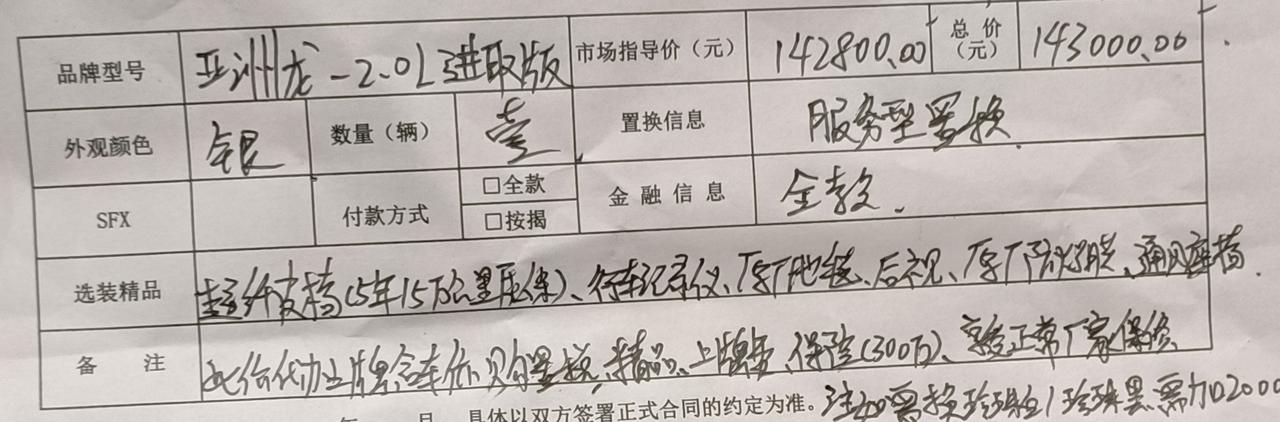 品牌型号 亚洲龙-2.0L进取版 市场指导价（元） 142800.00 总价（元） 143000.00
外观颜色 银 数量（辆） 壹 置换信息 服务型置换
SFX 付款方式 □全款 □按揭 金融信息 全款
选装精品 超纤皮椅(5年15万公里质保)、行车记录仪、原厂地毯、后视、原厂防爆膜、通风座椅
备注 此价代办上牌含车价购置税、精品、上牌费、保险(300万)、享受正常厂家保修
年 月 具体以双方签署正式合同的约定为准。注如需换珍珠白/珍珠黑需加2000